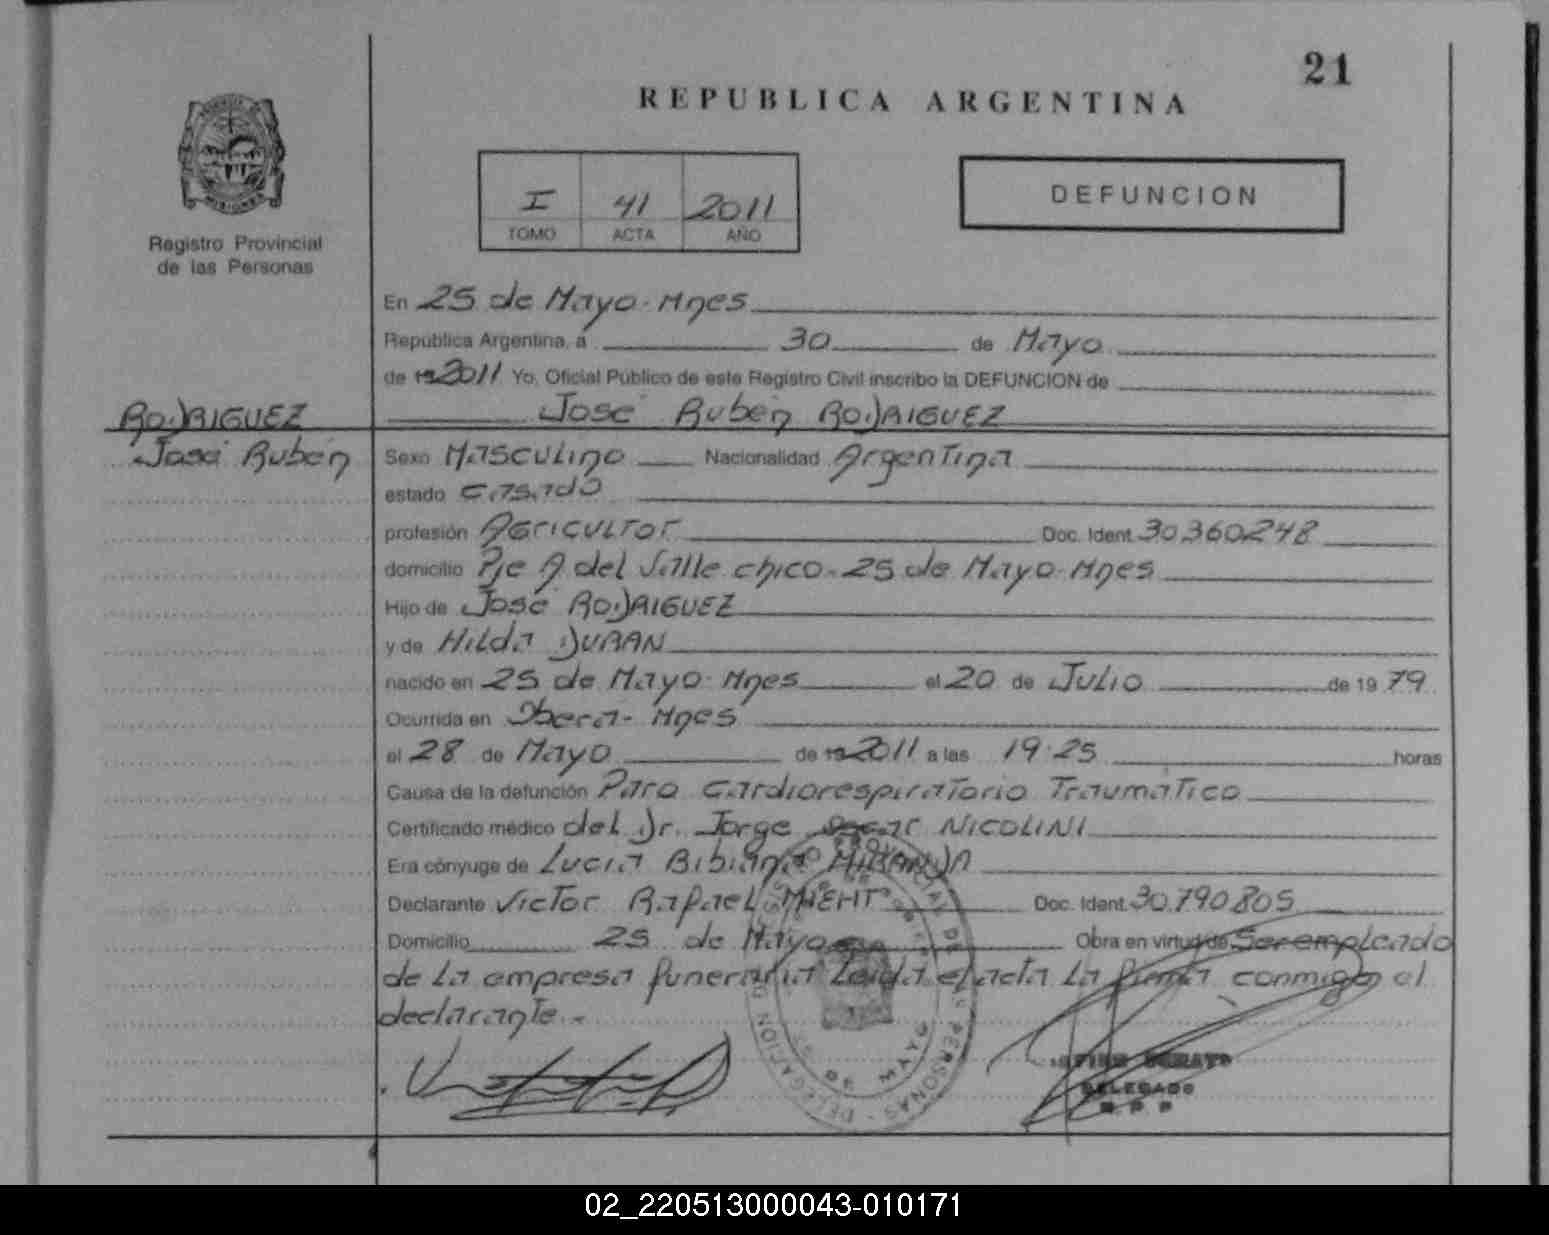 21
REPUBLICA ARGENTINA
I 41 2011
TOMO ACTA AÑO
DEFUNCION
MISIONES
Registro Provincial
de las Personas
En 25 de Mayo - Mnes
República Argentina, a 30 de Mayo
de 19 2011 Yo, Oficial Público de este Registro Civil inscribo la DEFUNCION de
RODRIGUEZ José Rubén RODRIGUEZ
José Rubén Sexo Masculino Nacionalidad Argentina
estado casado
profesión Agricultor Doc. Ident. 30.360.248
domicilio Pje A del Valle chico - 25 de Mayo - Mnes
Hijo de José RODRIGUEZ
y de Hilda DURAN
nacido en 25 de Mayo - Mnes el 20 de Julio de 19 79
Ocurrida en Obera - Mnes
el 28 de Mayo de 19 2011 a las 19:25 horas
Causa de la defunción Paro Cardiorespiratorio Traumático
Certificado médico del Dr. Jorge Oscar NICOLINI
Era cónyuge de Lucia Bibiana MIRANDA
Declarante Victor Rafael Doc. Ident. 30.790.805
Domicilio 25 de Mayo Obra en virtud de Ser empleado
de la empresa funeraria acta la firma conmigo el
declarante.-
DELEGACION 25 DE MAYO
DE LAS PERSONAS
DELEGADO
R P P
02_220513000043-010171